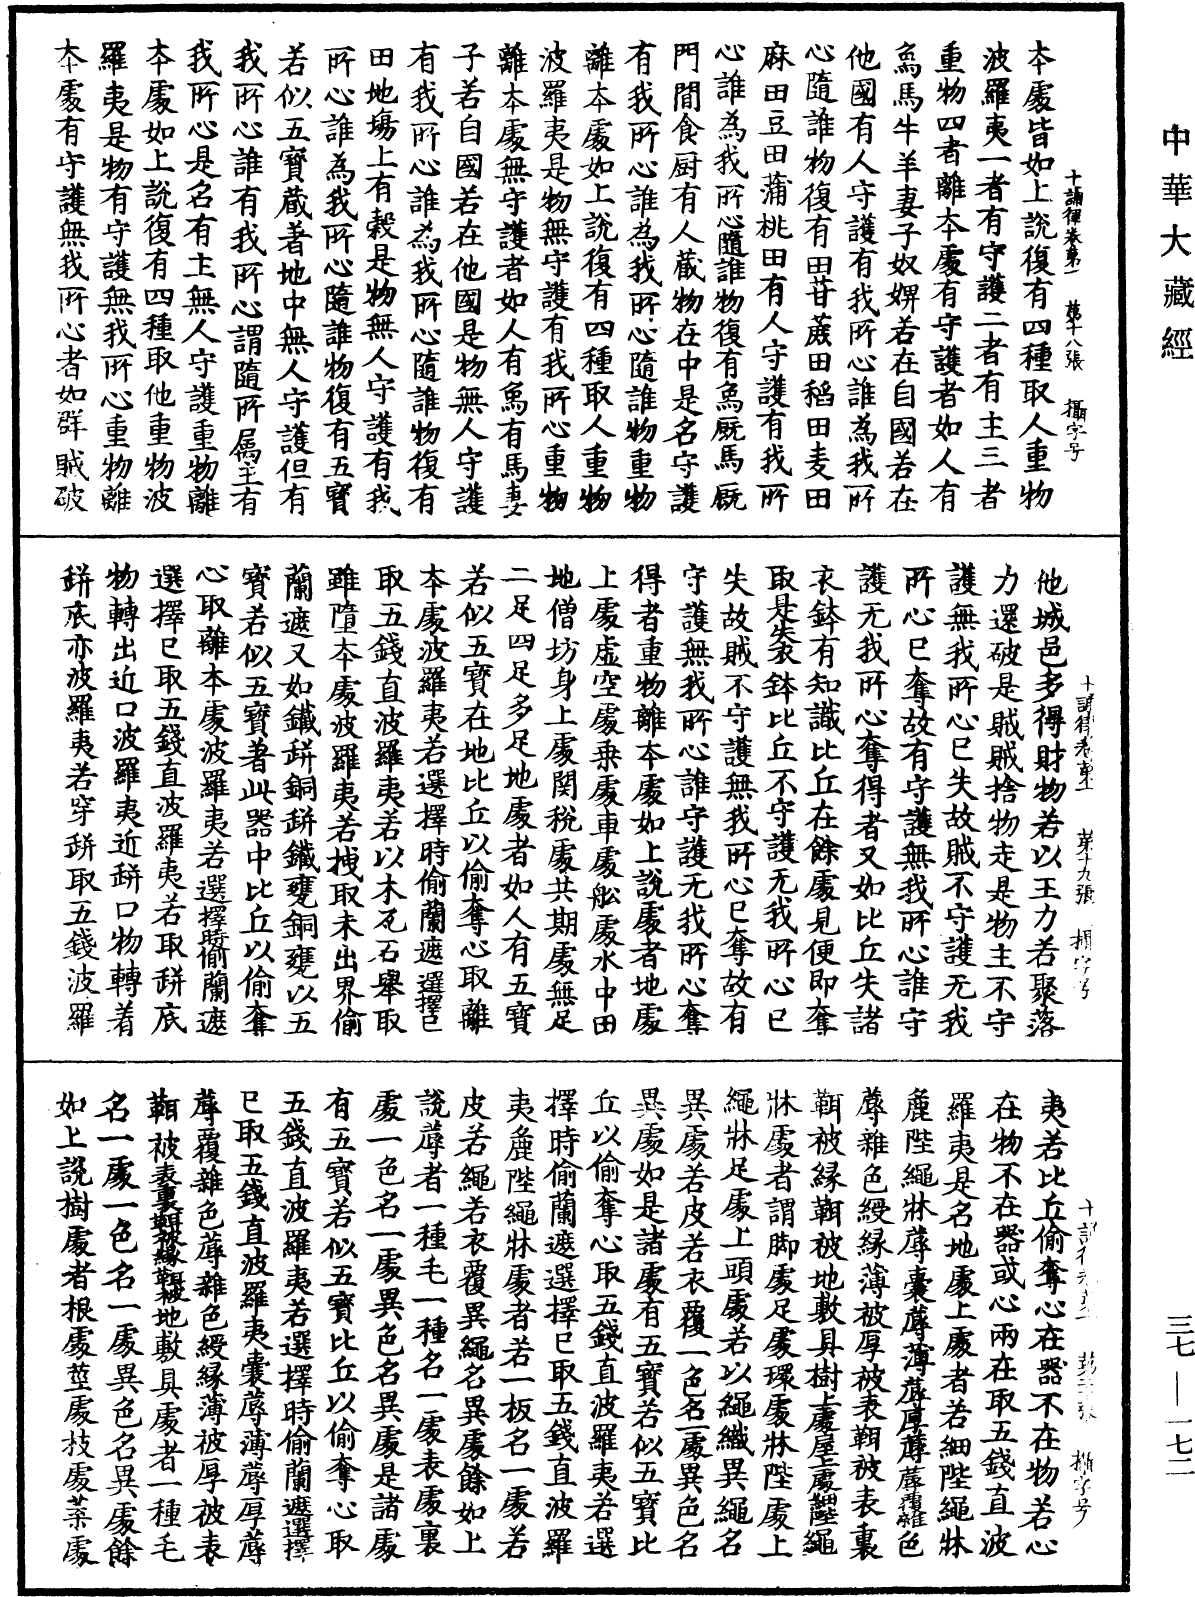 中華大藏經
十誦律卷第一　第十八張　攝字号
本處皆如上說復有四種取人重物
波羅夷一者有守護二者有主三者
重物四者離本處有守護者如人有
象馬牛羊妻子奴婢若在自國若在
他國有人守護有我所心誰為我所
心隨誰物復有田苷蔗田稻田麦田
麻田豆田蒲桃田有人守護有我所
心誰為我所心隨誰物復有象厩馬厩
門間食厨有人藏物在中是名守護
有我所心誰為我所心隨誰物重物
離本處如上說復有四種取人重物
波羅夷是物無守護有我所心重物
離本處無守護者如人有象有馬妻
子若自國若在他國是物無人守護
有我所心誰為我所心隨誰物復有
田地塲上有穀是物無人守護有我
所心誰為我所心隨誰物復有五寶
若似五寶藏著地中無人守護但有
我所心誰有我所心謂隨所属主有
我所心是名有主無人守護重物離
本處如上說復有四種取他重物波
羅夷是物有守護無我所心重物離
本處有守護無我所心者如群賊破
十誦律卷第一　第十九張　攝字号
他城邑多得財物若以王力若聚落
力還破是賊賊捨物走是物主不守
護無我所心已失故賊不守護无我
所心已奪故有守護無我所心誰守
護无我所心奪得者又如比丘失諸
衣鉢有知識比丘在餘處見便即奪
取是失衣鉢比丘不守護无我所心已
失故賊不守護無我所心已奪故有
守護無我所心誰守護无我所心奪
得者重物離本處如上說處者地處
上處虛空處乘處車處舩處水中田
地僧坊身上處関稅處共期處無足
二足四足多足地處者如人有五寶
若似五寶在地比丘以偷奪心取離
本處波羅夷若選擇時偷蘭遮選擇已
取五錢直波羅夷若以木瓦石舉取
雖墮本處波羅夷若拽取未出界偷
蘭遮又如鐵缾銅缾鐵甕銅甕以五
寶若似五寶著此器中比丘以偷奪
心取離本處波羅夷若選擇時偷蘭遮
選擇已取五錢直波羅夷若取缾底
物轉出近口波羅夷近缾口物轉着
缾底亦波羅夷若穿缾取五錢波羅
夷若比丘偷奪心在器不在物若心
在物不在器或心兩在取五錢直波
羅夷是名地處上處者若細陛繩牀
麁陛繩牀蓐囊蓐薄蓐厚蓐蓐覆雜色
蓐雜色綬緣薄被厚被表䩕被表裏
䩕被緣䩕被地敷具樹上處屋上處細陛繩
牀處者謂脚處足處環處牀陛處上
繩牀足處上頭處若以繩織異繩名
異處若皮若衣覆一色名一處異色名
異處如是諸處有五寶若似五寶比
丘以偷奪心取五錢直波羅夷若選
擇時偷蘭遮選擇已取五錢直波羅
夷麁陛繩牀處者若一板名一處若
皮若繩若衣覆異繩名異處餘如上
說蓐者一種毛一種名一處表處裏
處一色名一處異色名異處是諸處
有五寶若似五寶比丘以偷奪心取
五錢直波羅夷若選擇時偷蘭遮選擇
已取五錢直波羅夷囊蓐薄蓐厚蓐
蓐覆雜色蓐雜色綬緣薄被厚被表
䩕被表裏䩕被緣䩕被地敷具處者一種毛
名一處一色名一處異色名異處餘
如上說樹處者根處莖處技處葉處
三七—一七二